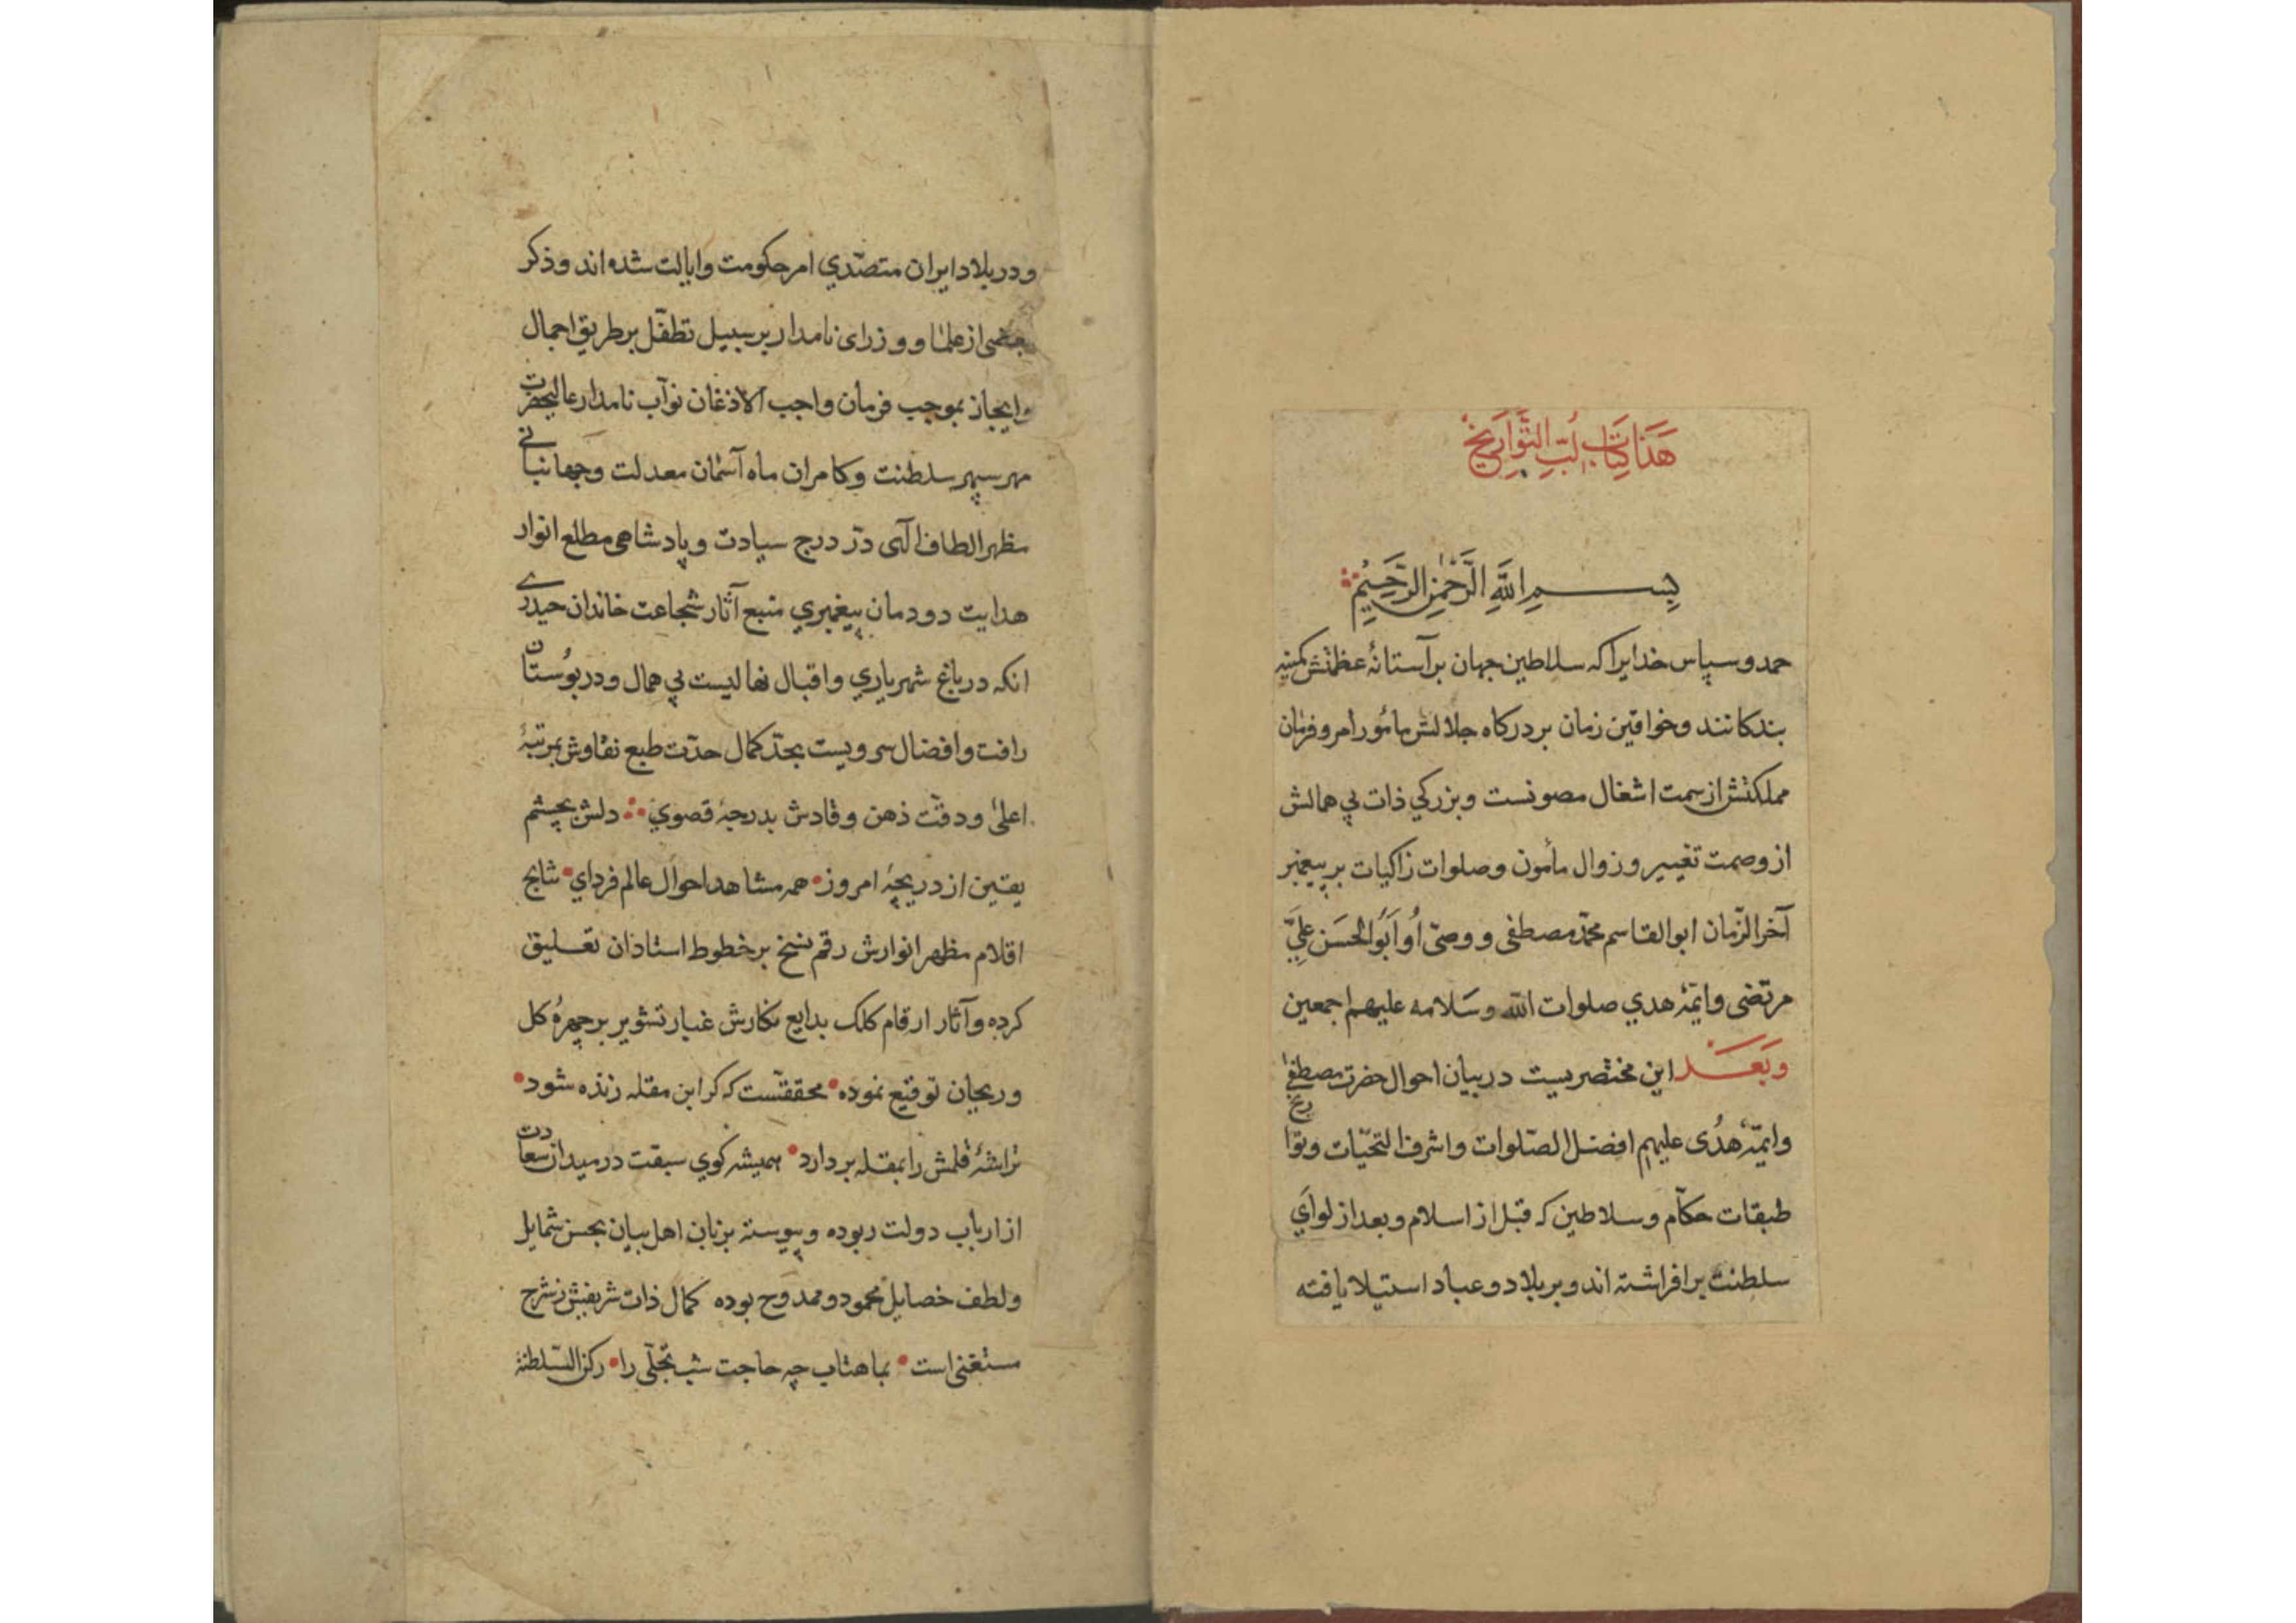 هَذَا كِتَابُ لُبِّ التَّوَارِيخ
بِسْمِ اللَّهِ الرَّحْمٰنِ الرَّحِيْمِ
حمد و سپاس خدایرا که سلاطین جهان بر آستانهٔ عظمتش کمینه
بندکانند وخواقین زمان بر درکاه جلالش مأمور امر و فرمان
مملکتش از سمت اشغال مصونست وبزرکي ذات بي همالش
از وصمت تغییر و زوال مأمون وصلوات زاکیات بر پیغمبر
آخر الزّمان ابوالقاسم محمّد مصطفی و وصیّ أو أَبُو الحَسَن عَلِيّ
مرتضی وایمّهٔ هدي صلوات اللّه وسَلامه علیهم اجمعین
وَبَعَد این مختصریست در بیان احوال حضرت مصطفی
وایمّهٔ هُدی علیهم افضل الصّلوات واشرف التحیّات وتواریخ
طبقات حکّام وسلاطین که قبل از اسلام و بعد از لوای
سلطنت برافراشته اند و بر بلاد و عباد استیلا یافته
ودر بلاد ایران متصدّي امر حکومت وایالت شده اند و ذکر
بعضی از علما و وزرای نامدار بر سبیل تطفّل بر طریق اجمال
وایجاز بموجب فرمان واجب الاذغان نوّاب نامدار عالیحضرت
مهر سپهر سلطنت وکامران ماه آسمان معدلت وجهانبانے
مظهر الطاف الٓهی درّ درج سیادت و پادشاهی مطلع انوار
هدایت دودمان پیغمبري منبع آثار شجاعت خاندان حیدرے
انکه در باغ شهریاري واقبال نهالیست بي همال ودر بوُستان
رافت وافضال سرویست بحدّ کمال حدّت طبع نقاوش بمرتبهٔ
اعلیٰ ودقّت ذهن وقادش بدرجهٔ قصوي دلش بچشم
یقین از دریچهٔ امروز همه مشاهد احوال عالم فردای نتایج
اقلام مظهر انوارش رقم نسخ بر خطوط استادان تعلیق
کرده وآثار ارقام کلک بدایع نکارش غبار تشویر بر چهرهٔ کل
وریحان توقیع نموده محققست که کر ابن مقله زنده شود
تراشهٔ قلمش را بمقله بردارد همیشه کوي سبقت در میدان سعادت
از ارباب دولت ربوده و پیوسته بزبان اهل بیان بحسن شمایل
ولطف خصایل محمود و ممدوح بوده کمال ذات شریفش ز شرح
مستغنی است بماهتاب چه حاجت شب تجلّی را رکن السّلطنة